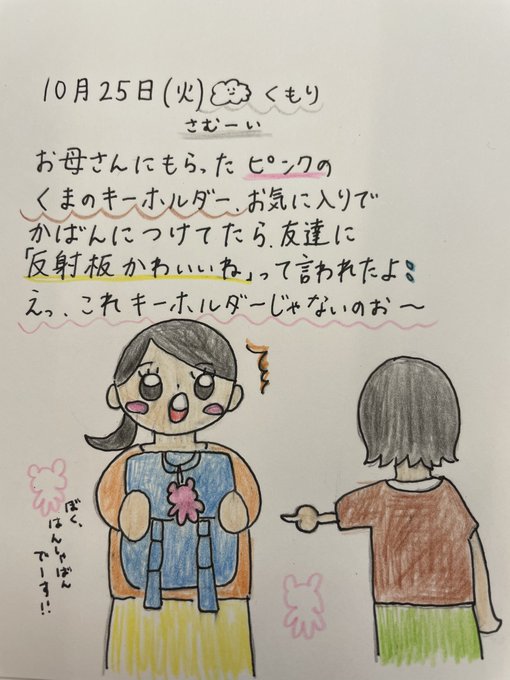 10月25日(火) くもり
さむーい
お母さんにもらった ピンクの
くまのキーホルダー、お気に入りで
かばんにつけてたら、友達に
「反射板かわいいね」って言われたよ
えっ、これキーホルダーじゃないのぉ〜
ぼく、
はんしゃばん
でーす!!